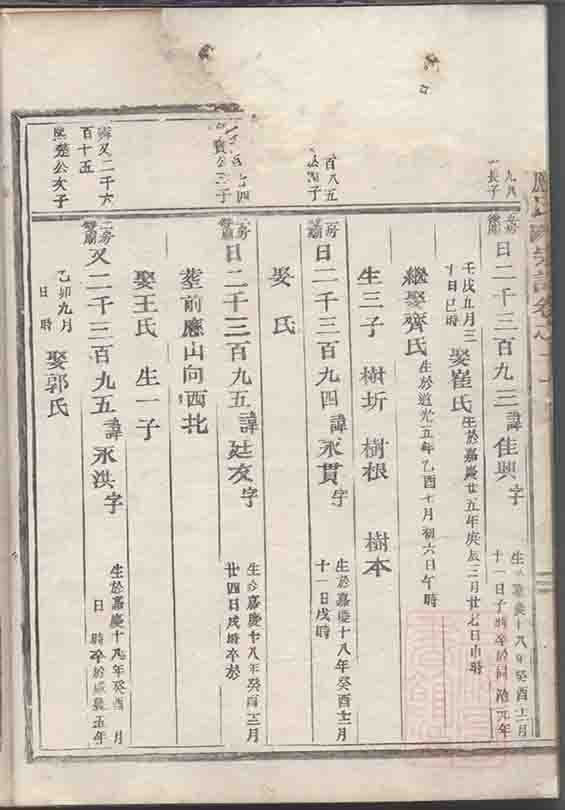 九八
長子
二房
日二千三百九三諱佳興字
生於嘉慶十八年癸酉十二月
十一日子時卒於同治元年
壬戌九月三
十日巳時
娶崔氏
生於嘉慶廿五年庚辰三月廿七日申時
繼娶齊氏
生於道光五年乙酉十月初六日午時
生三子 樹圻 樹根 樹本
百八五
四子
二房
日二千三百九四諱永貫字
生於嘉慶十八年癸酉十二月
十一日戌時
娶 氏
四
寶公三子
二房
日二千三百九五諱廷友字
生於嘉慶十八年癸酉十二月
廿四日戌時卒於
葬前應山向西北
娶王氏 生一子
又二千六
百十五
熙楚公次子
二房
又二千三百九五諱永洪字
生於嘉慶十八年癸酉 月
日 時卒於咸豐五年
乙卯九月
日 時
娶郭氏